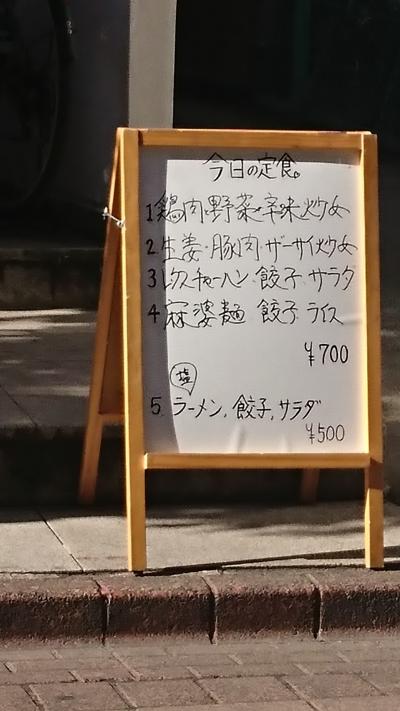 今日の定食。
1 鶏肉・野菜辛味炒め
2.生姜・豚肉・ザーサイ炒め
3 レタスチャーハン・餃子 サラダ
4 麻婆麺 餃子 ライス
¥700
塩
5. ラーメン, 餃子, サラダ
¥500